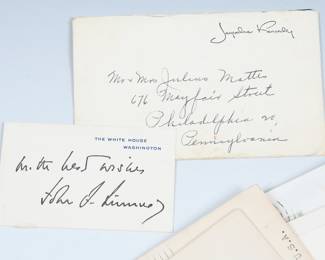 Jacqueline Kennedy
Mr + Mrs Julius Mattes
676 Mayfair Street
Philadelphia 20,
Pennsylvania
THE WHITE HOUSE
WASHINGTON
With best wishes
John F. Kennedy
U.S.A.